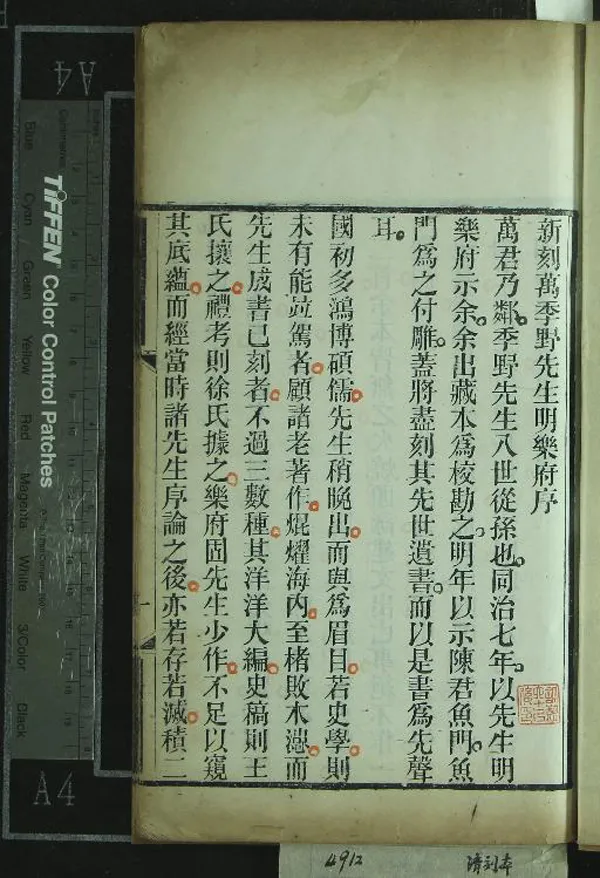 新刻萬季野先生明樂府序
萬君乃鄰季野先生八世從孫也同治七年以先生明
樂府示余余出藏本爲校勘之明年以示陳君魚門魚
門爲之付雕蓋將盡刻其先世遺書而以是書爲先聲
耳
國初多鴻博碩儒先生稍晚出而與爲眉目若史學則
未有能竝駕者顧諸老著作焜耀海內至楮敗木漶而
先生成書已刻者不過三數種其洋洋大編史稿則王
氏攘之禮考則徐氏據之樂府固先生少作不足以窺
其底蘊而經當時諸先生序論之後亦若存若滅積二
一
A4
TIFFEN® Color Control Patches
Blue
Cyan
Green
Yellow
Red
Magenta
White
3/Color
Black
A4
4912
清刻本